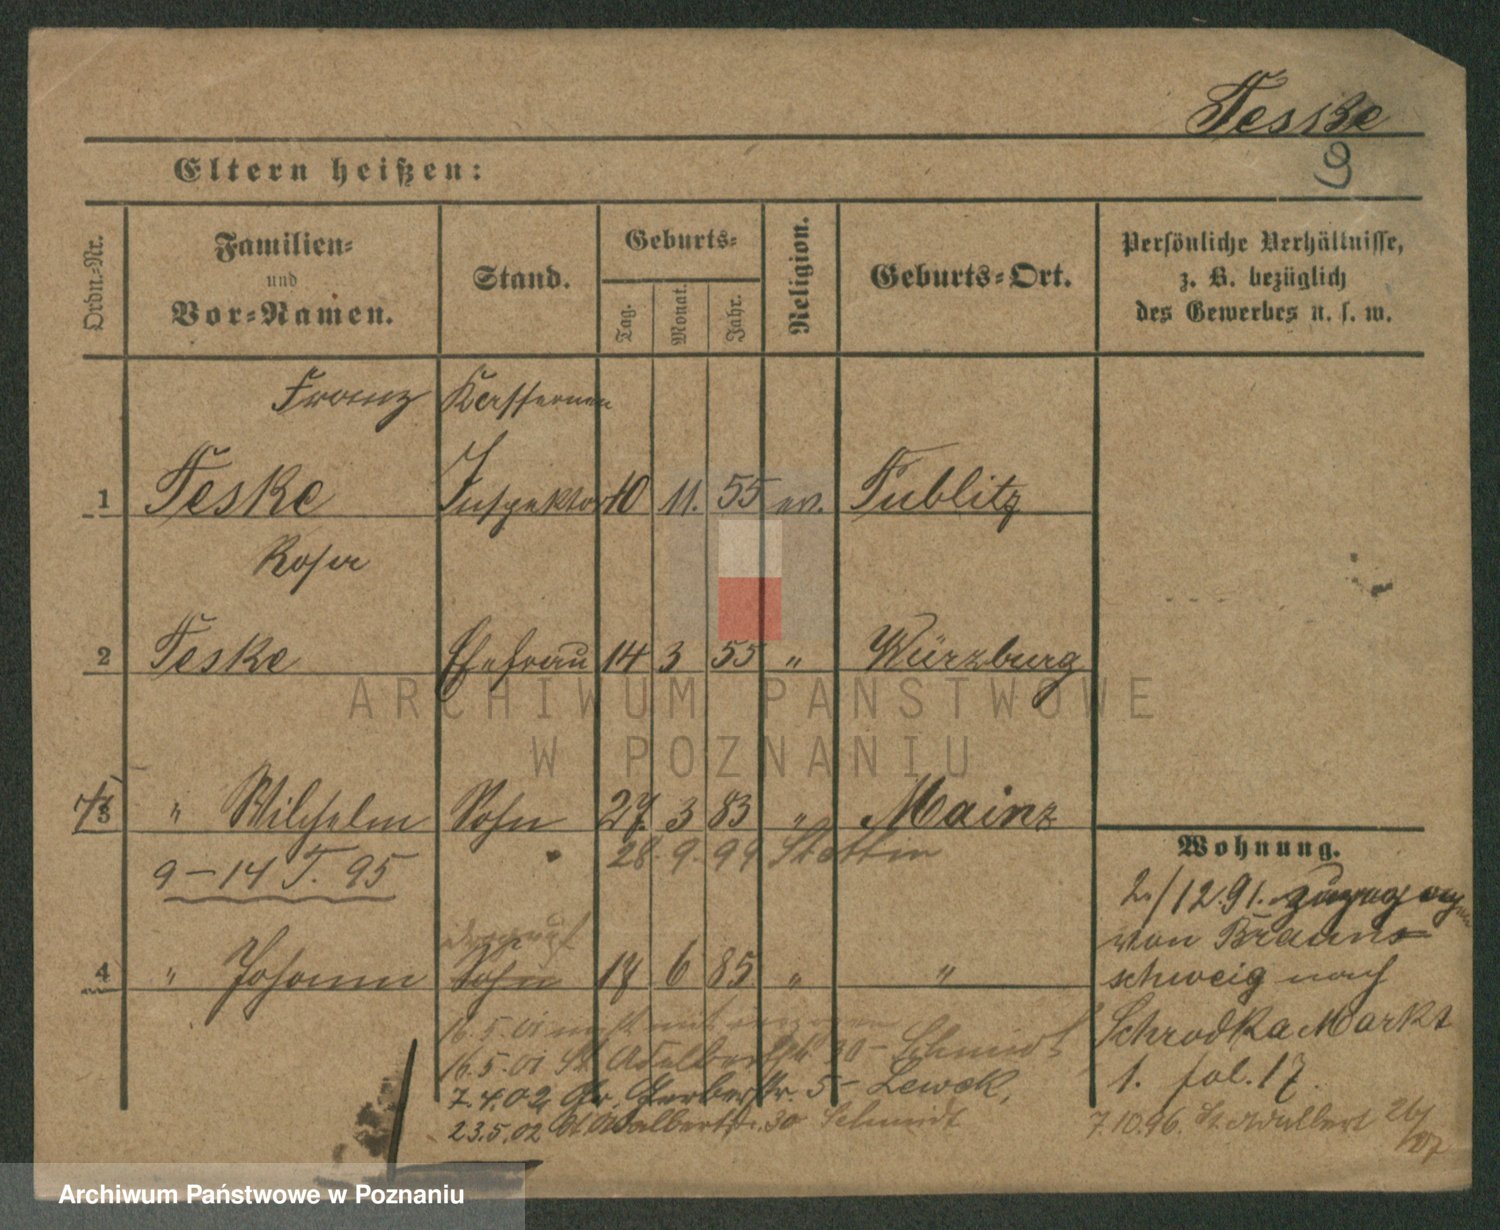 Teske
9
Eltern heißen:
Ordn.-Nr.
Familien-
und
Vor-Namen.
Stand.
Geburts-
Tag.
Monat.
Jahr.
Religion.
Geburts-Ort.
Persönliche Verhältnisse,
z. B. bezüglich
des Gewerbes u. s. w.
Franz Kassernen
1 Teske Inspektor 10 11. 55 ev. Tublitz
Rosa
2 Teske Ehefrau 14 3 55 " Würzburg
3 " Wilhelm Sohn 27. 3 83 " Mainz
28. 9. 99 Stettin
9-14 T. 95
4 " Johann Sohn 18 6 85 " "
16.5.01
16.5.01 St. Adalbertstr. 30 - Schmidt
7.4.02 Gr. Gerberstr. 5 - Lewek,
23.5.02 St. Adalbertstr. 30 Schmidt
Wohnung.
2./12.91. zugezogen
von Braun-
schweig nach
Schrodka Markt
1. fol. 17.
7.10.96. St. Adalbert 26/
ARCHIWUM PAŃSTWOWE
W POZNANIU
Archiwum Państwowe w Poznaniu